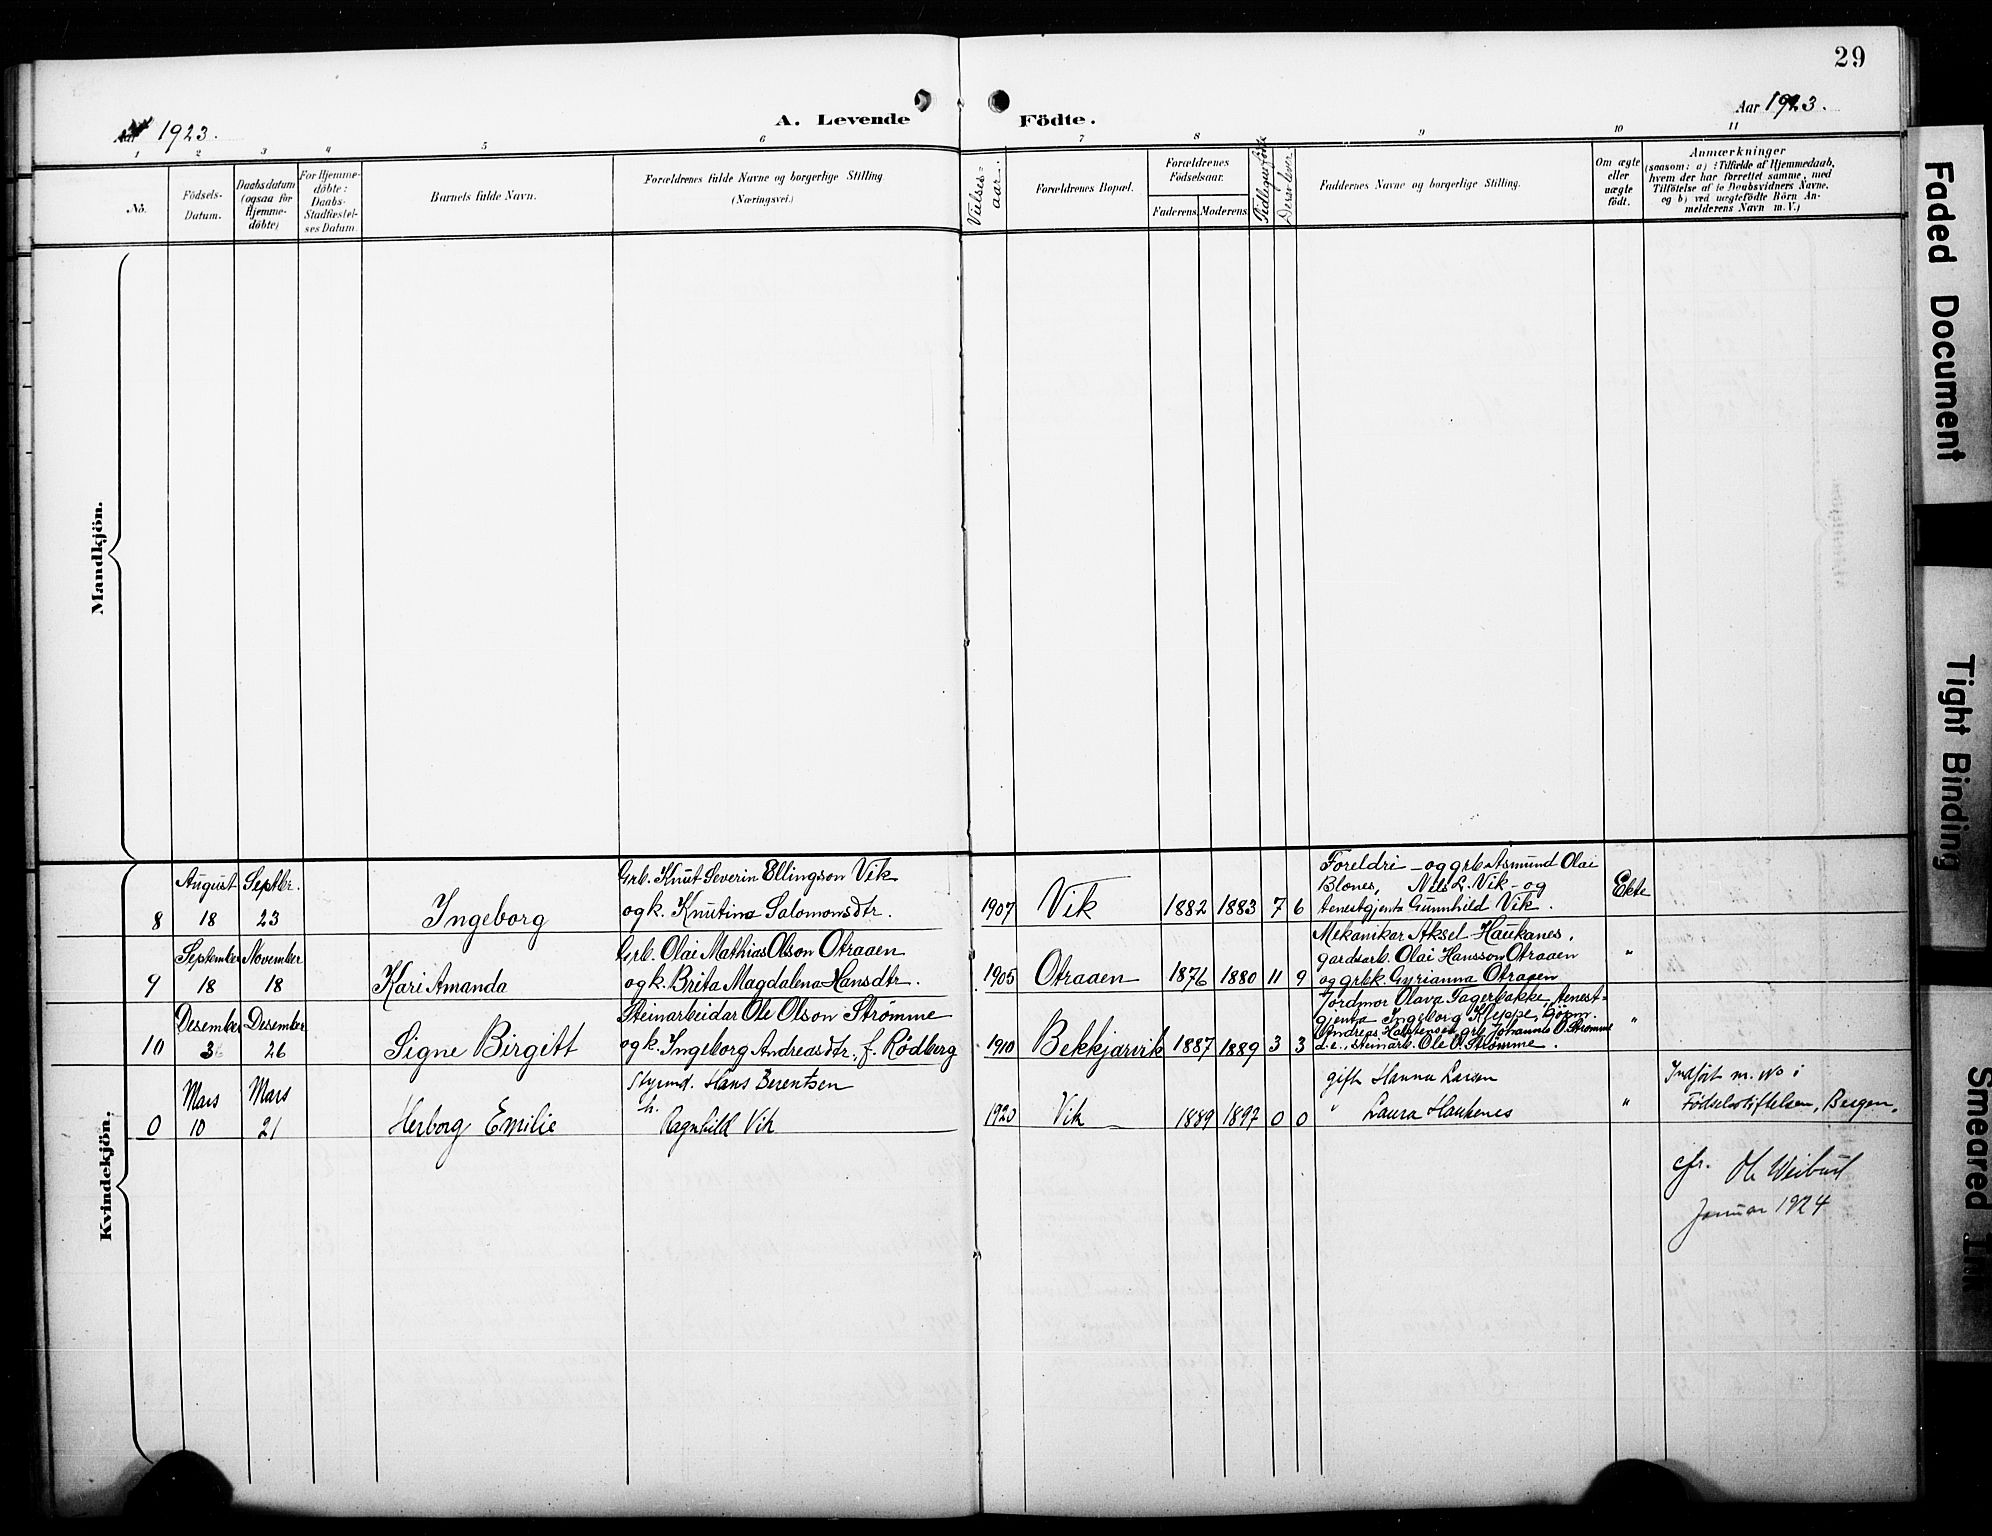 29
Aar 1923.
A. Levende Födte.
Aar 1923.
1 2 3 4 5 6 7 8 9 10 11
No.
Födsels-
Datum.
Daabsdatum
(ogsaa for
Hjemme-
döbte)
For Hjemme-
döbte:
Daabs-
Stadfæstel-
ses Datum.
Barnets fulde Navn.
Forældrenes fulde Navne og borgerlige Stilling
(Næringsvei.)
Vielses-
aar.
Forældrenes Bopæl.
Forældrenes
Födselsaar.
Faderens
Moderens
Tidlegare födte
Derav lever
Faddernes Navne og borgerlige Stilling.
Om ægte
eller
uægte
födt.
Anmærkninger
(saasom: a) i Tilfælde af Hjemmedaab,
hvem der har forrettet samme, med
Tilföielse af to Daabsvidners Navne.
og b) ved uægtefödte Börn An-
melderens Navn m. V.)
Mandkjön.
Kvindekjön.
8
August
18
Septbr.
23
Ingeborg
Grb. Knut Severin Ellingson Vik
og k. Knutina Salomonsdtr.
1907
Vik
1882 1883 7 6
Foreldri - og grb. Asmund Olai
Blones, Nils L. Vik - og
tenestgjenta Gunnhild Vik.
Ekte
9
September
18
November
18
Kari Amanda
Grb. Olai Mathias Olson Otraaen
og k. Brita Magdalena Hansdtr.
1905
Otraaen
1876 1880 11 9
Mekanikar Aksel Haukanes,
gardsarb. Olai Hansson Otraaen
og grbk. Gyrianna Otraaen
"
10
Desember
3
Desember
26
Signe Birgitt
Steinarbeidar Ole Olson Strömme
og k. Ingeborg Andreasdtr., f. Rödberg
1910
Bekkjarvik
1887 1889 3 3
Jordmor Olava Fagerbakke, tenest-
gjenta Ingeborg Kleppe,
Andreas grb. Johannes O. Strömme
d. e., steinarb. Ole O. Strömme.
"
0
Mars
10
Mars
21
Herborg Emilie
Styrmd. Hans Berentsen
h. Ragnhild Vik
1920
Vik
1889 1897 0 0
gift Hanna Larsen
" Laura Haukenes
"
Indfört m. No i
Födselsstiftelsen, Bergen.
cfr.
Januar 1924
Faded Document
Tight Binding
Smeared Ink